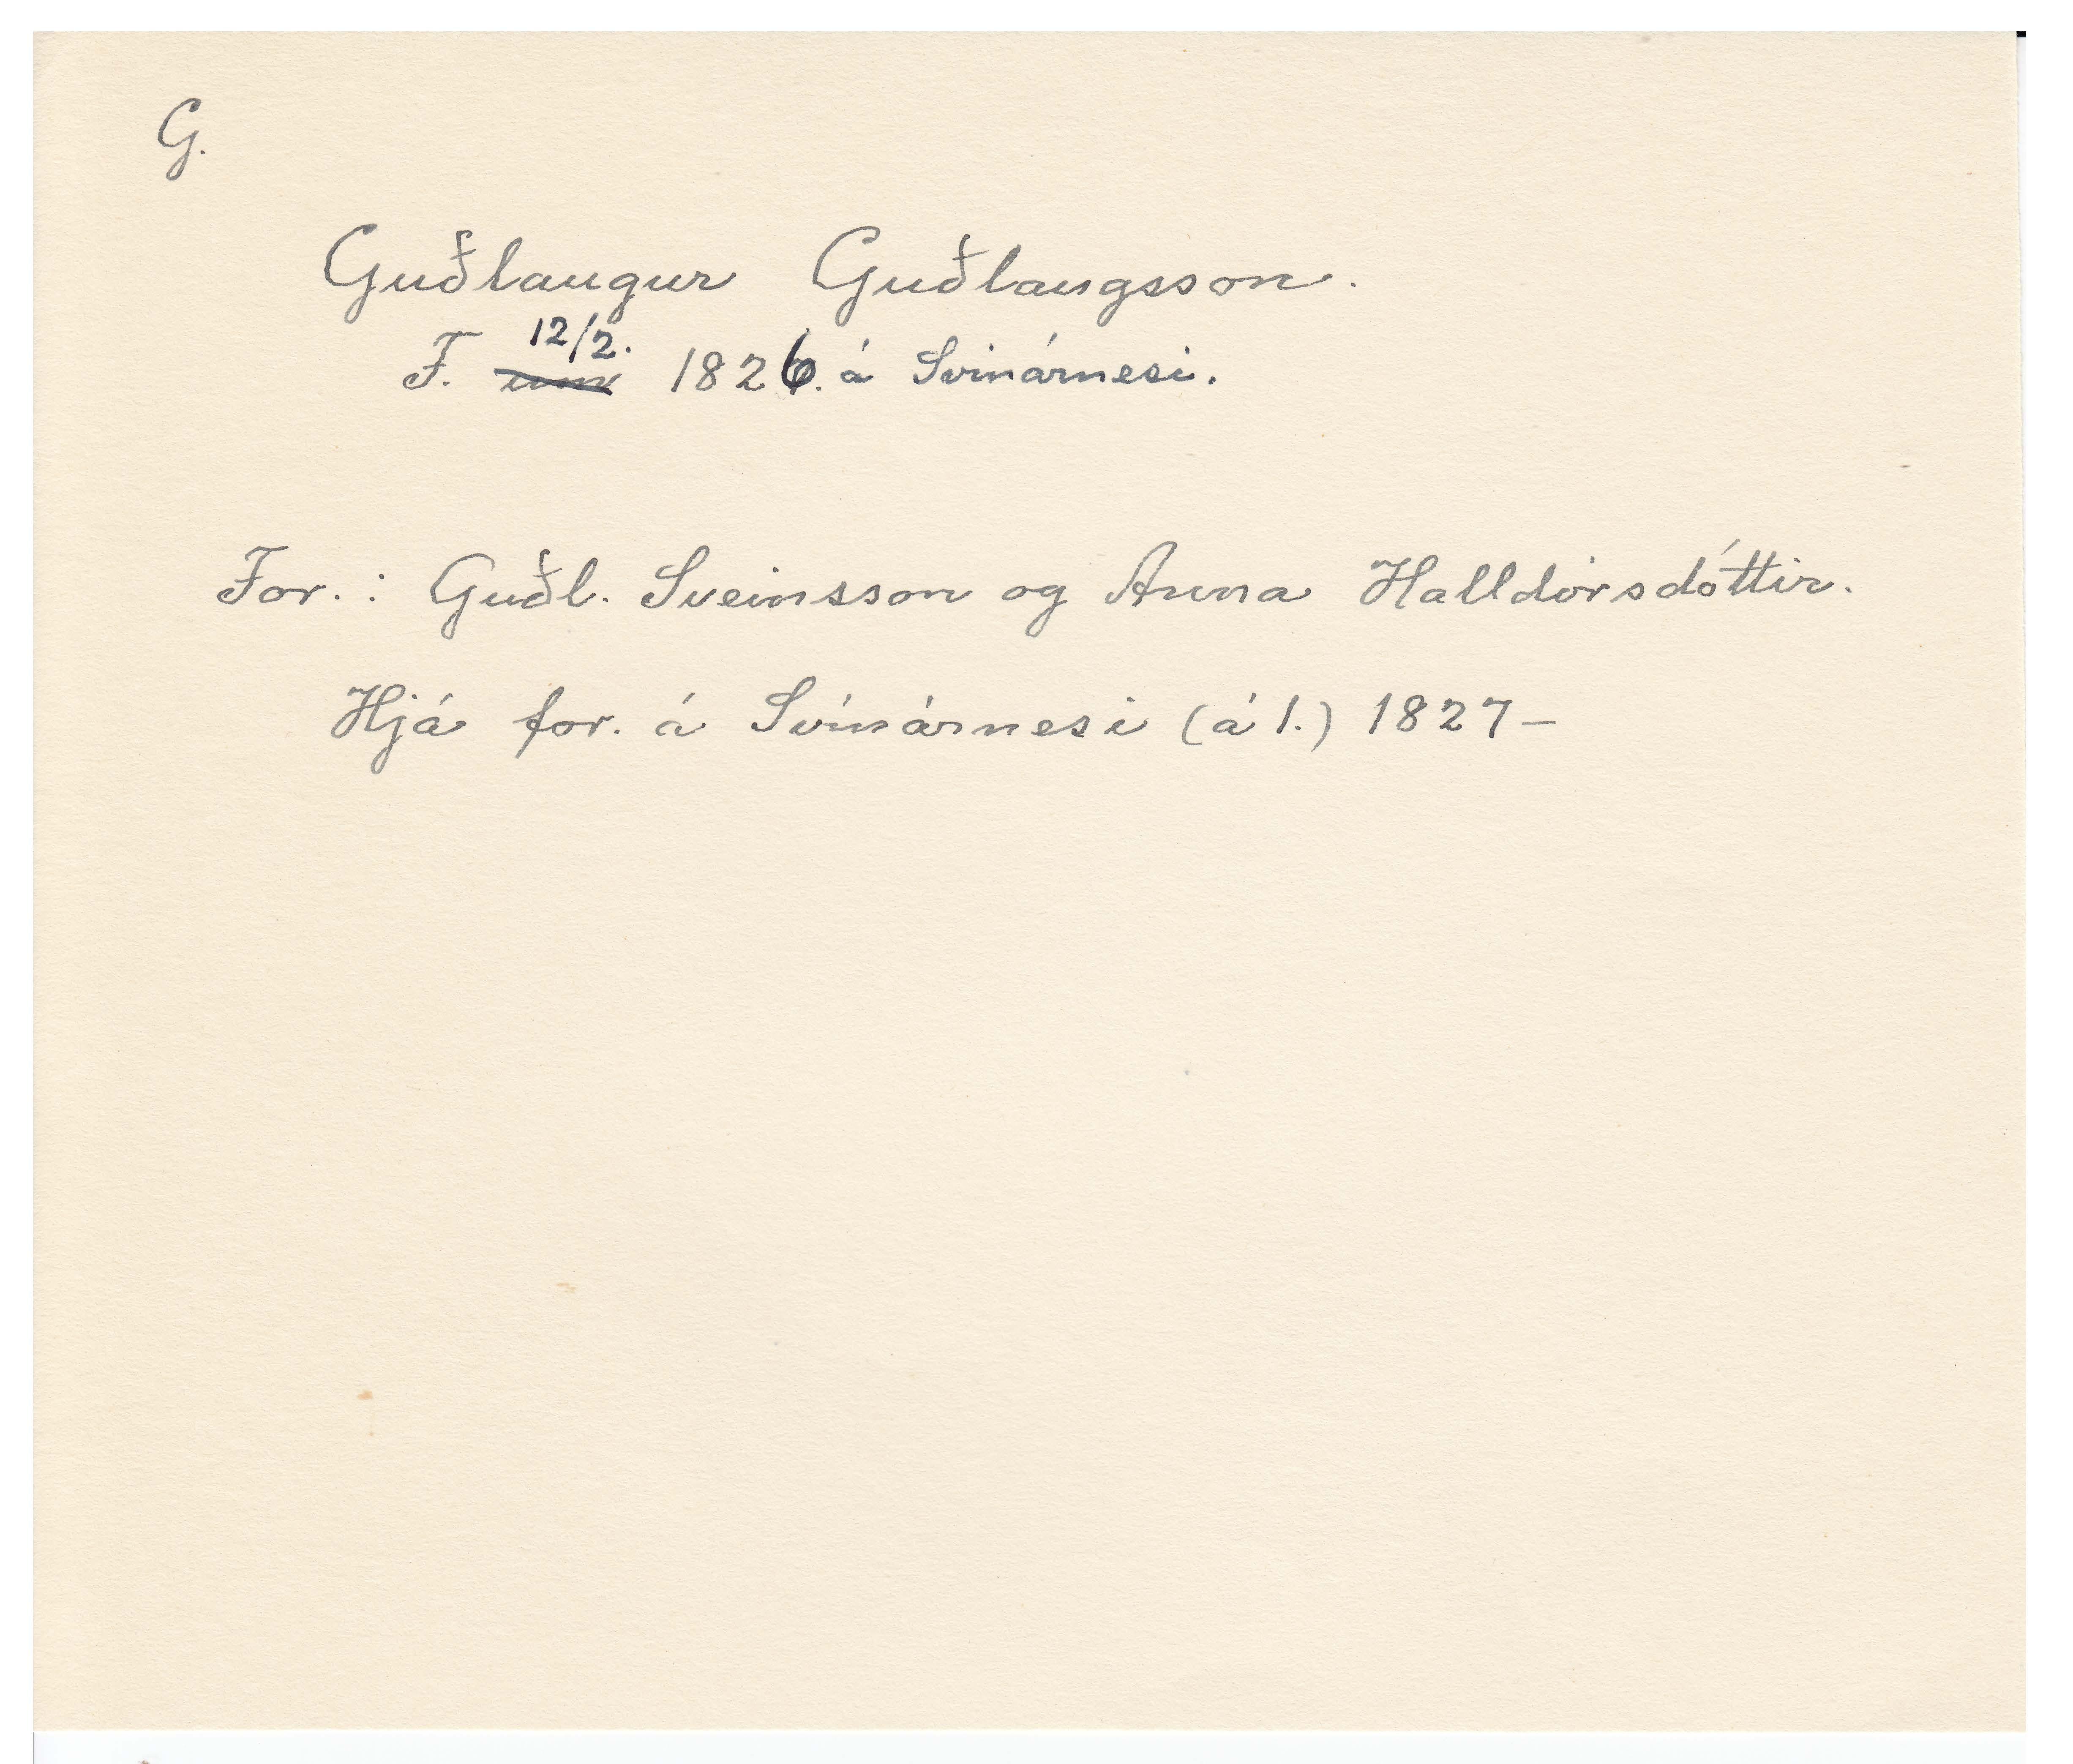 G.
Guðlaugur Guðlaugsson.
12/2.
F. um 1826. á Svínárnesi.
For.: Guðl. Sveinsson og Anna Halldórsdóttir.
Hjá for. á Svínárnesi (á 1.) 1827-